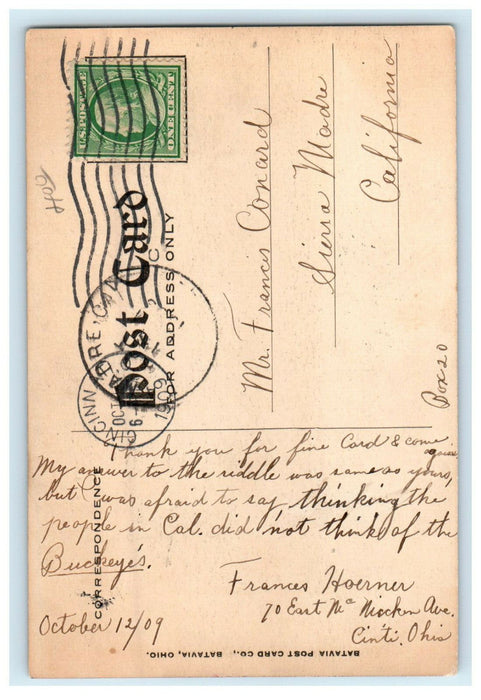 U.S. POSTAGE
ONE CENT
Post Card
FOR ADDRESS ONLY
CINCINN
OCT
6-
1909
Mr. Francis Conard
Sierra Madre
California
Box 20
CORRESPONDENCE
Thank you for fine Card & come again.
My answer to the riddle was same as yours,
but I was afraid to say, thinking the
people in Cal. did not think of the
Buckeye's.
Frances Hoerner
70 East Mc Micken Ave.
Cinti. Ohio
October 12/09
BATAVIA POST CARD CO., BATAVIA, OHIO.